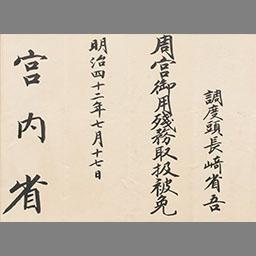 調度頭長﨑省吾
周宮御用殘務取扱被免
明治四十二年七月十七日
宮內省